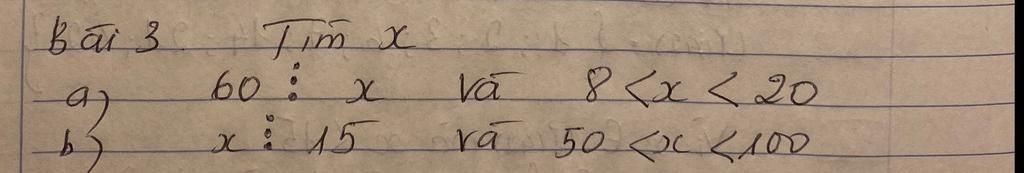 Bài 3. Tìm x
a) 60 ⋮ x và 8 < x < 20
b) x ⋮ 15 và 50 < x < 100